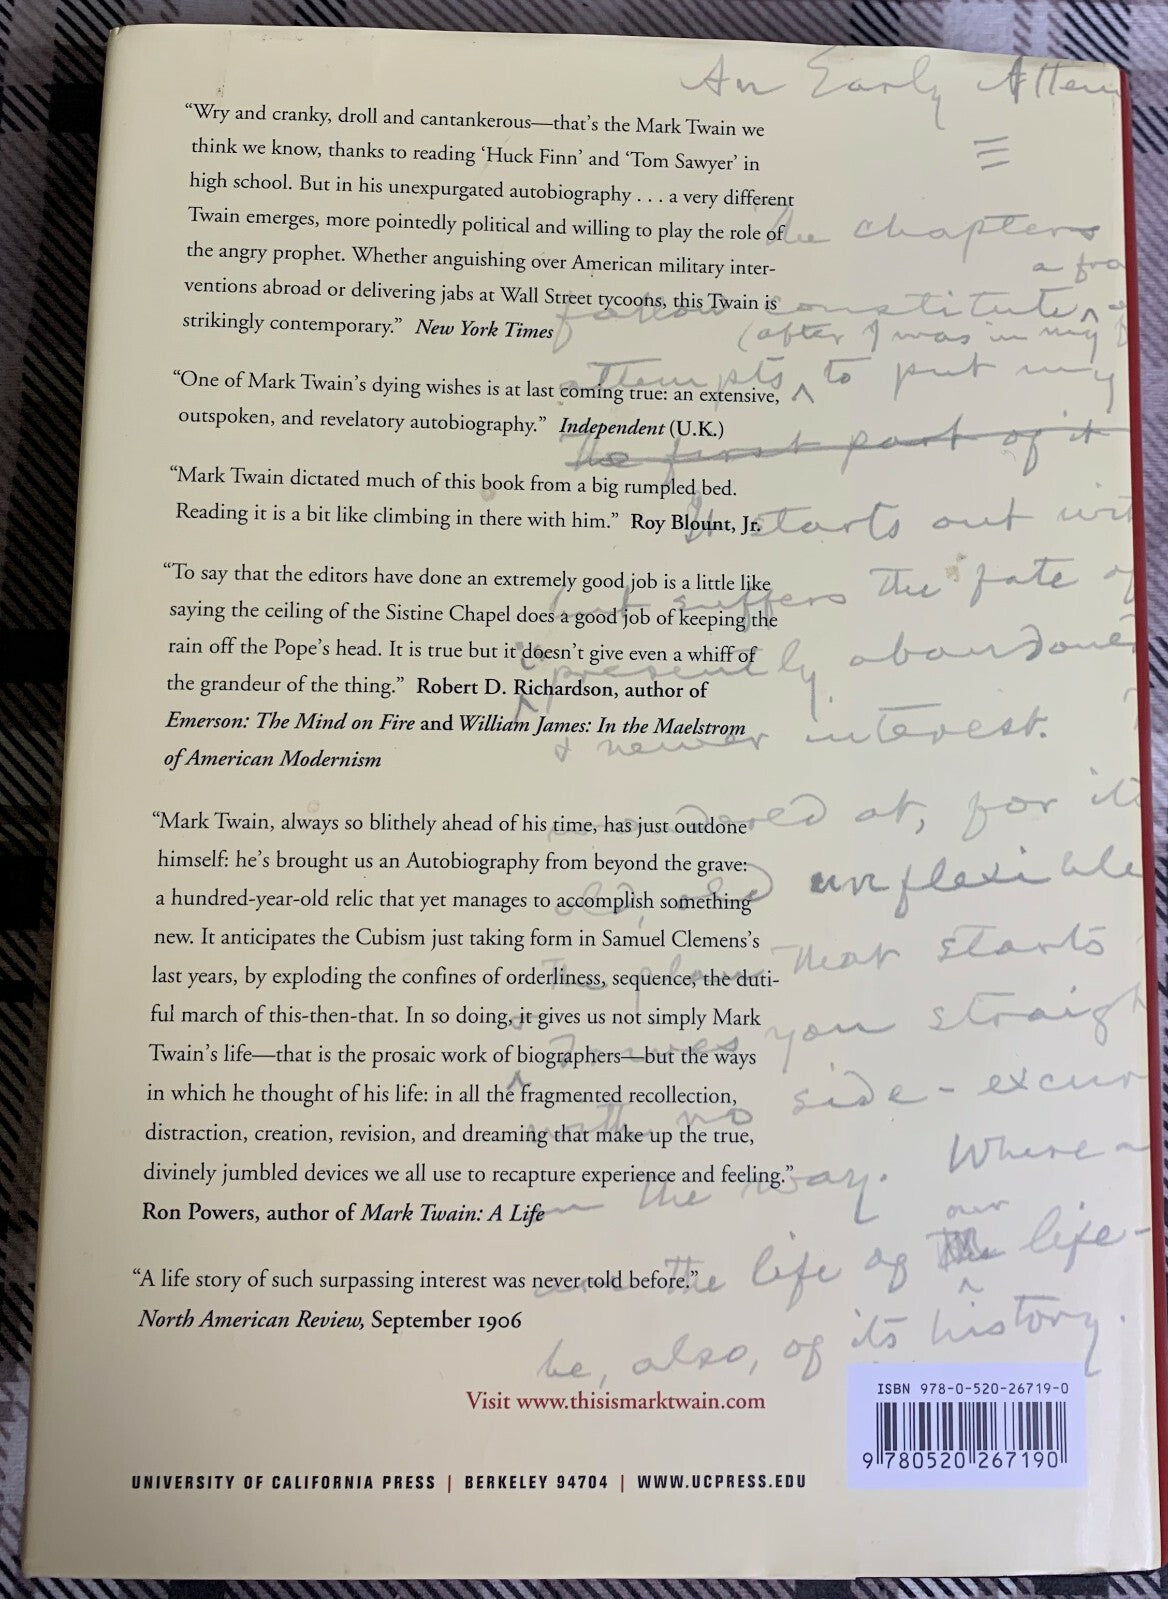 An Early Attem
"Wry and cranky, droll and cantankerous—that's the Mark Twain we
think we know, thanks to reading 'Huck Finn' and 'Tom Sawyer' in
high school. But in his unexpurgated autobiography . . . a very different
Twain emerges, more pointedly political and willing to play the role of
the angry prophet. Whether anguishing over American military inter-
ventions abroad or delivering jabs at Wall Street tycoons, this Twain is
strikingly contemporary." New York Times
"One of Mark Twain's dying wishes is at last coming true: an extensive,
outspoken, and revelatory autobiography." Independent (U.K.)
"Mark Twain dictated much of this book from a big rumpled bed.
Reading it is a bit like climbing in there with him." Roy Blount, Jr.
"To say that the editors have done an extremely good job is a little like
saying the ceiling of the Sistine Chapel does a good job of keeping the
rain off the Pope's head. It is true but it doesn't give even a whiff of
the grandeur of the thing." Robert D. Richardson, author of
Emerson: The Mind on Fire and William James: In the Maelstrom
of American Modernism
"Mark Twain, always so blithely ahead of his time, has just outdone
himself: he's brought us an Autobiography from beyond the grave:
a hundred-year-old relic that yet manages to accomplish something
new. It anticipates the Cubism just taking form in Samuel Clemens's
last years, by exploding the confines of orderliness, sequence, the duti-
ful march of this-then-that. In so doing, it gives us not simply Mark
Twain's life—that is the prosaic work of biographers—but the ways
in which he thought of his life: in all the fragmented recollection,
distraction, creation, revision, and dreaming that make up the true,
divinely jumbled devices we all use to recapture experience and feeling."
Ron Powers, author of Mark Twain: A Life
"A life story of such surpassing interest was never told before."
North American Review, September 1906
the chapters
a fra
follow constitute
(after I was in my
attempts to put my
the first part of it
It starts out wit
but suffers the fate of
presently abandoned
& newer interest.
wondered at, for it
old, old unflexible
The plan that starts
you straigh
with no side-excur
on the way. Where
our
are the life of the life-
be, also, of its history.
Visit www.thisismarktwain.com
ISBN 978-0-520-26719-0
9 780520 267190
UNIVERSITY OF CALIFORNIA PRESS | BERKELEY 94704 | WWW.UCPRESS.EDU